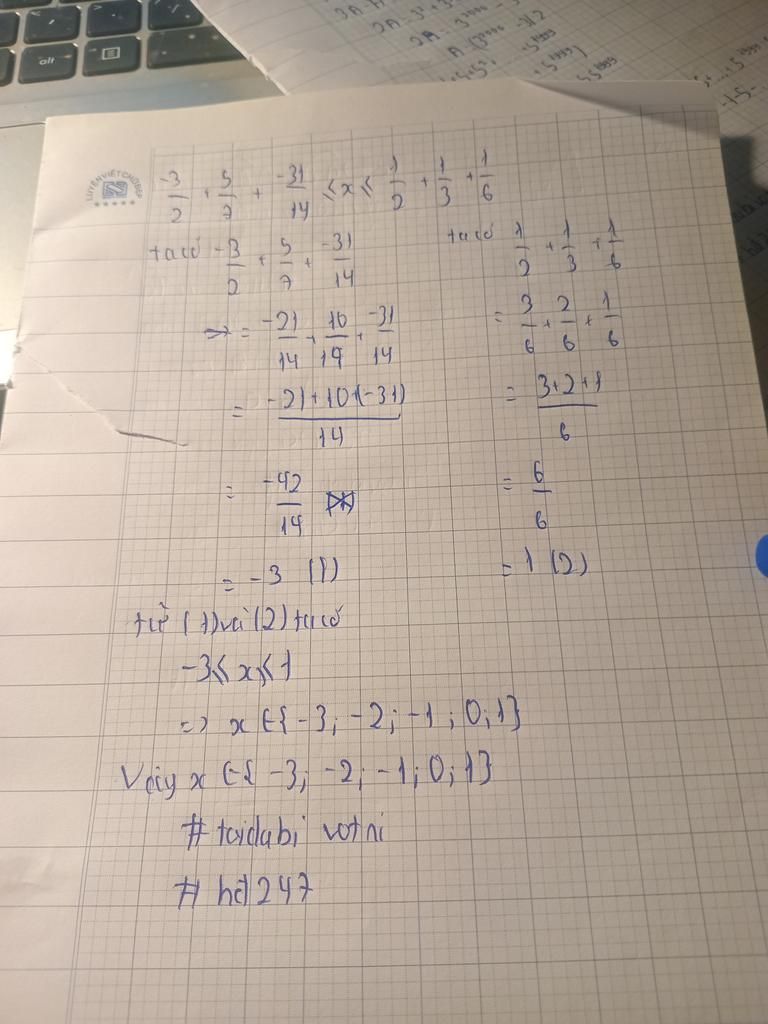 alt
LUYỆN VIẾT CHỮ ĐẸP
-3/2 + 5/7 + -31/14 ≤ x ≤ 1/2 + 1/3 + 1/6
ta có -3/2 + 5/7 + -31/14
→ = -21/14 + 10/14 + -31/14
= -21+10+(-31)/14
= -42/14
= -3 (1)
ta có 1/2 + 1/3 + 1/6
= 3/6 + 2/6 + 1/6
= 3+2+1/6
= 6/6
= 1 (2)
từ (1) và (2) ta có
-3 ≤ x ≤ 1
=> x ∈ { -3; -2; -1; 0; 1}
Vậy x ∈ { -3; -2; -1; 0; 1}
# toidabi votni
# hd247